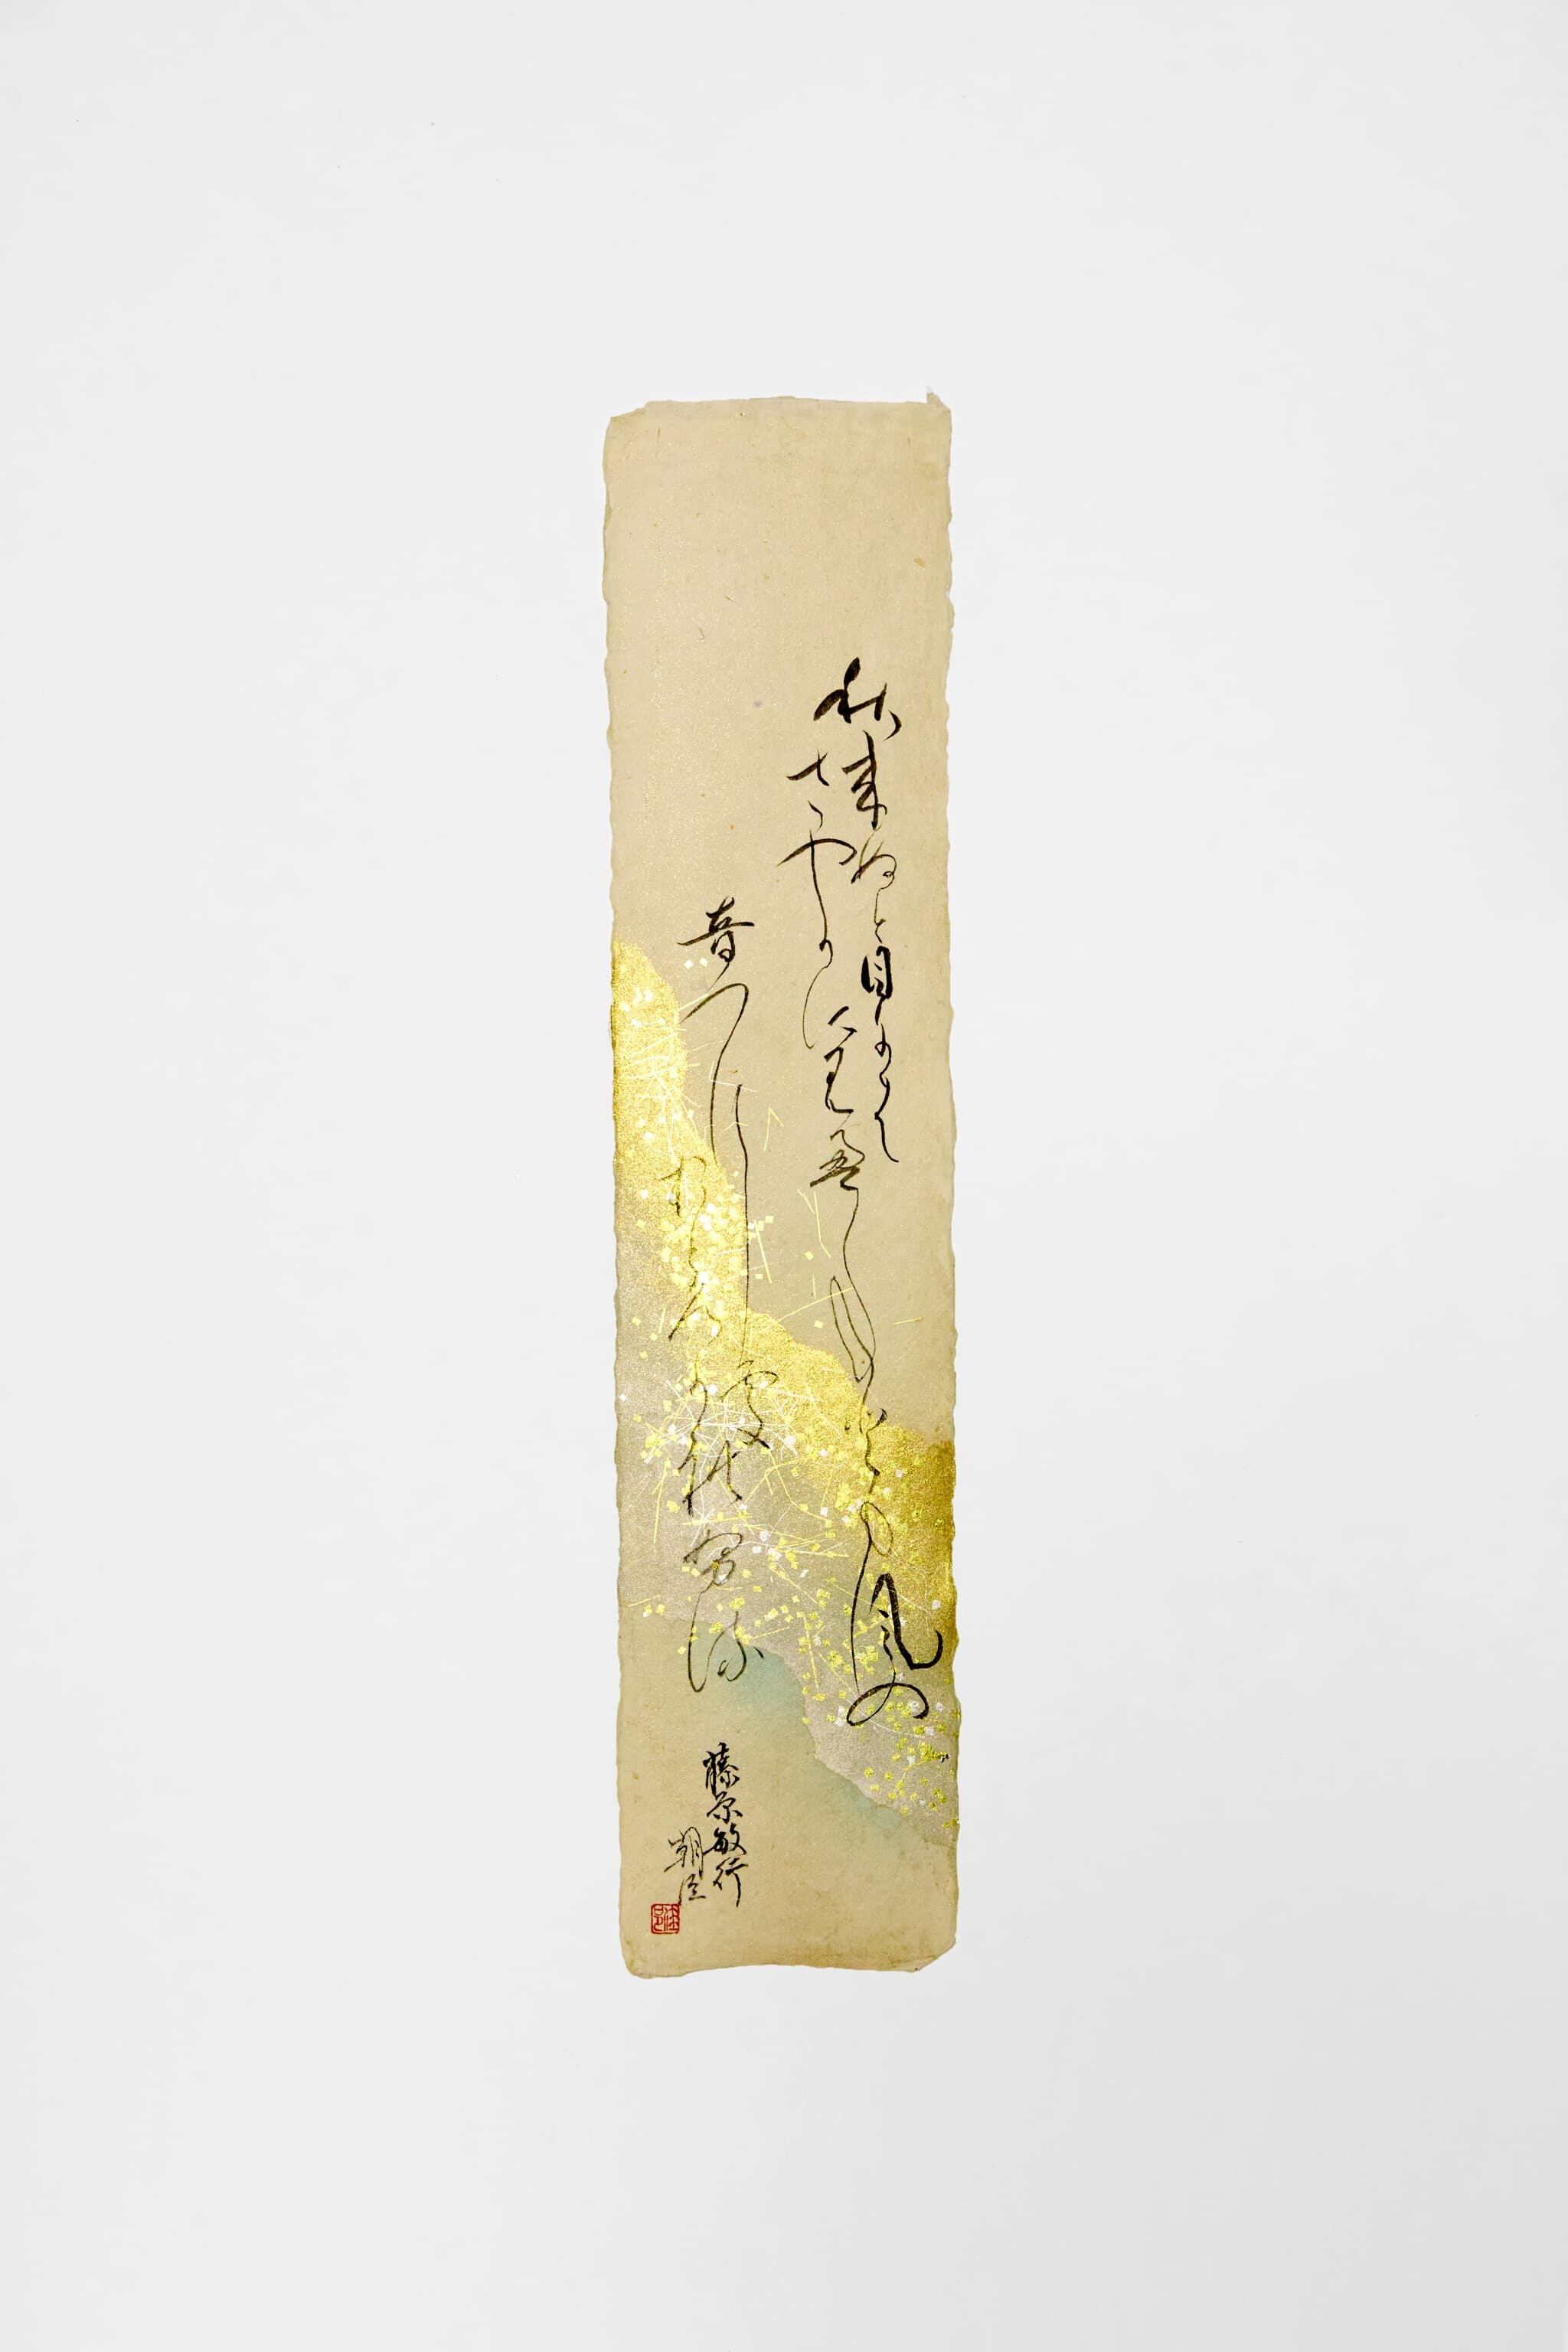 秋来ぬと目には
さやかに見えねとも風の
音にそ
おとろかれぬる
藤原敏行
朝臣